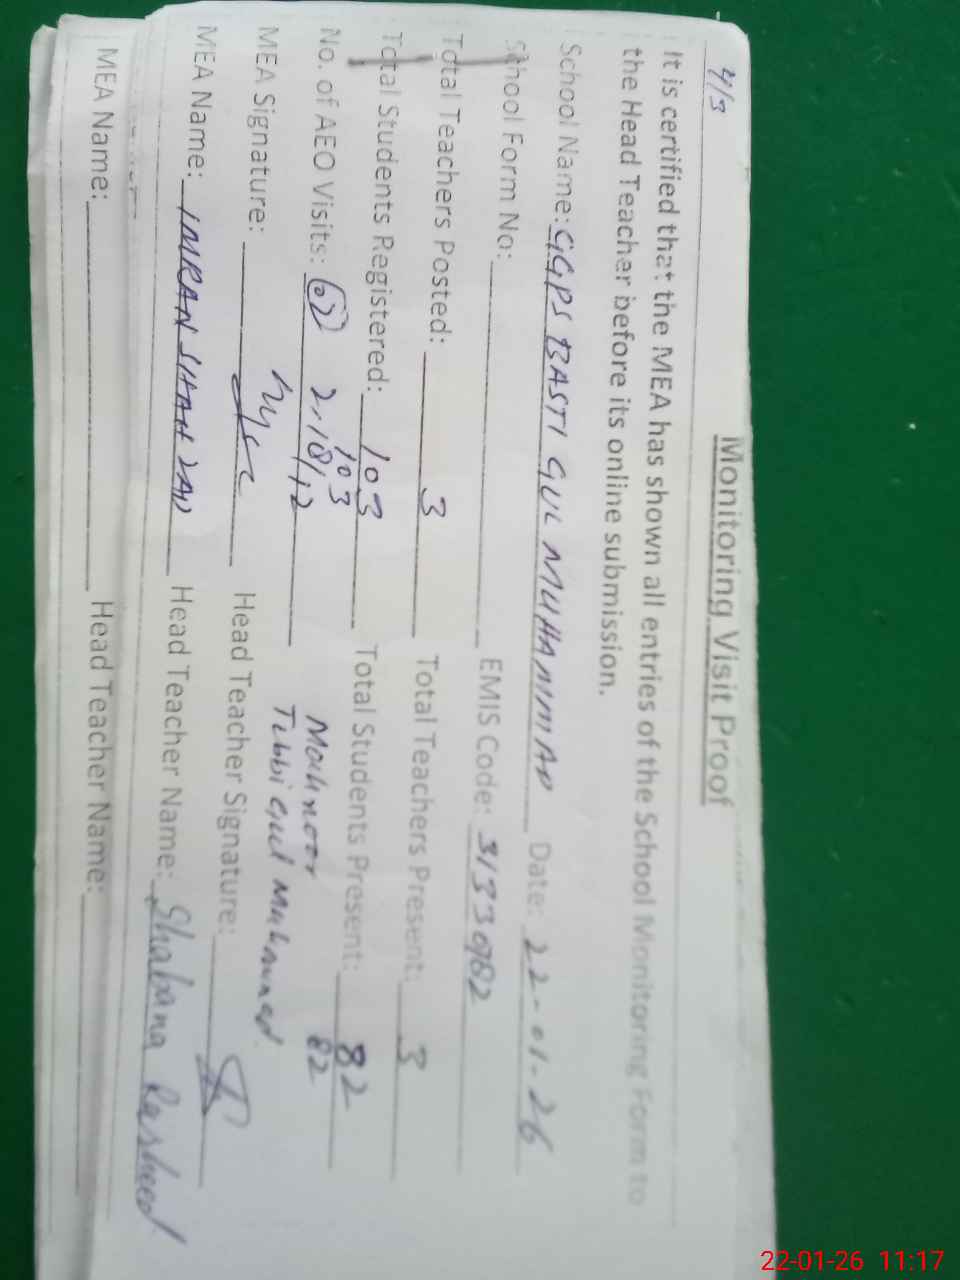 4/3
Monitoring Visit Proof
It is certified that the MEA has shown all entries of the School Monitoring Form to
the Head Teacher before its online submission.
School Name: GGPS BASTI GUL MUHAMMAD Date: 22-01-26
School Form No: EMIS Code: 31330982
Total Teachers Posted: 3 Total Teachers Present: 3
Total Students Registered: 103 Total Students Present: 82
103 82
No. of AEO Visits: 02 2,18/12 Mahnoor
Tibbi Gul Muhammad
MEA Signature: Head Teacher Signature:
MEA Name: IMRAN SHAHZAD Head Teacher Name: Shabana Rasheed
MEA Name: Head Teacher Name:
22-01-26 11:17